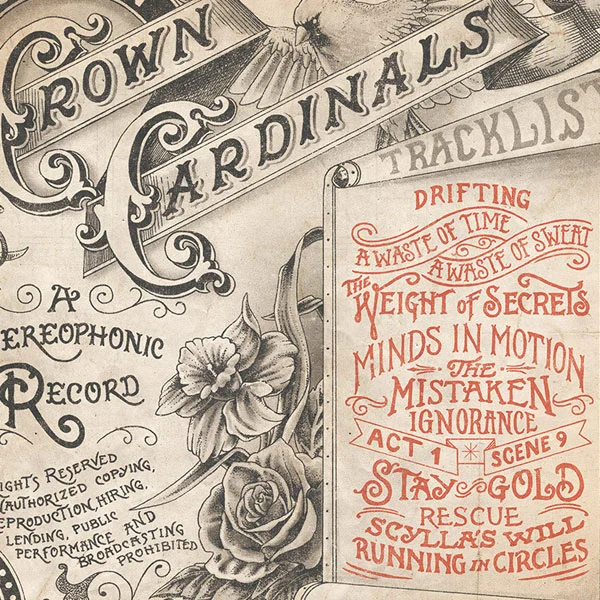 CROWN
CARDINALS
TRACKLIST
DRIFTING
A WASTE OF TIME
A WASTE OF SWEAT
THE
WEIGHT of SECRETS
MINDS IN MOTION
THE
MISTAKEN
IGNORANCE
ACT 1 SCENE 9
STAY GOLD
RESCUE
SCYLLA'S WILL
RUNNING in CIRCLES
A
EREOPHONIC
RECORD
IGHTS RESERVED
AUTHORIZED COPYING,
EPRODUCTION, HIRING,
LENDING, PUBLIC
PERFORMANCE AND
BROADCASTING
PROHIBITED